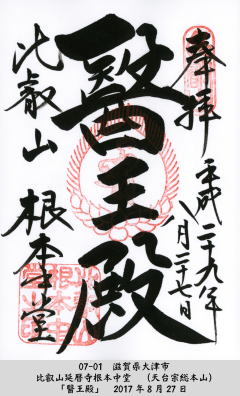 奉拝
平成二十九年
八月二十七日
醫王殿
比叡山
根本中堂
07-01　滋賀県大津市
比叡山延暦寺根本中堂　（天台宗総本山）
「醫王殿」　2017年8月27日